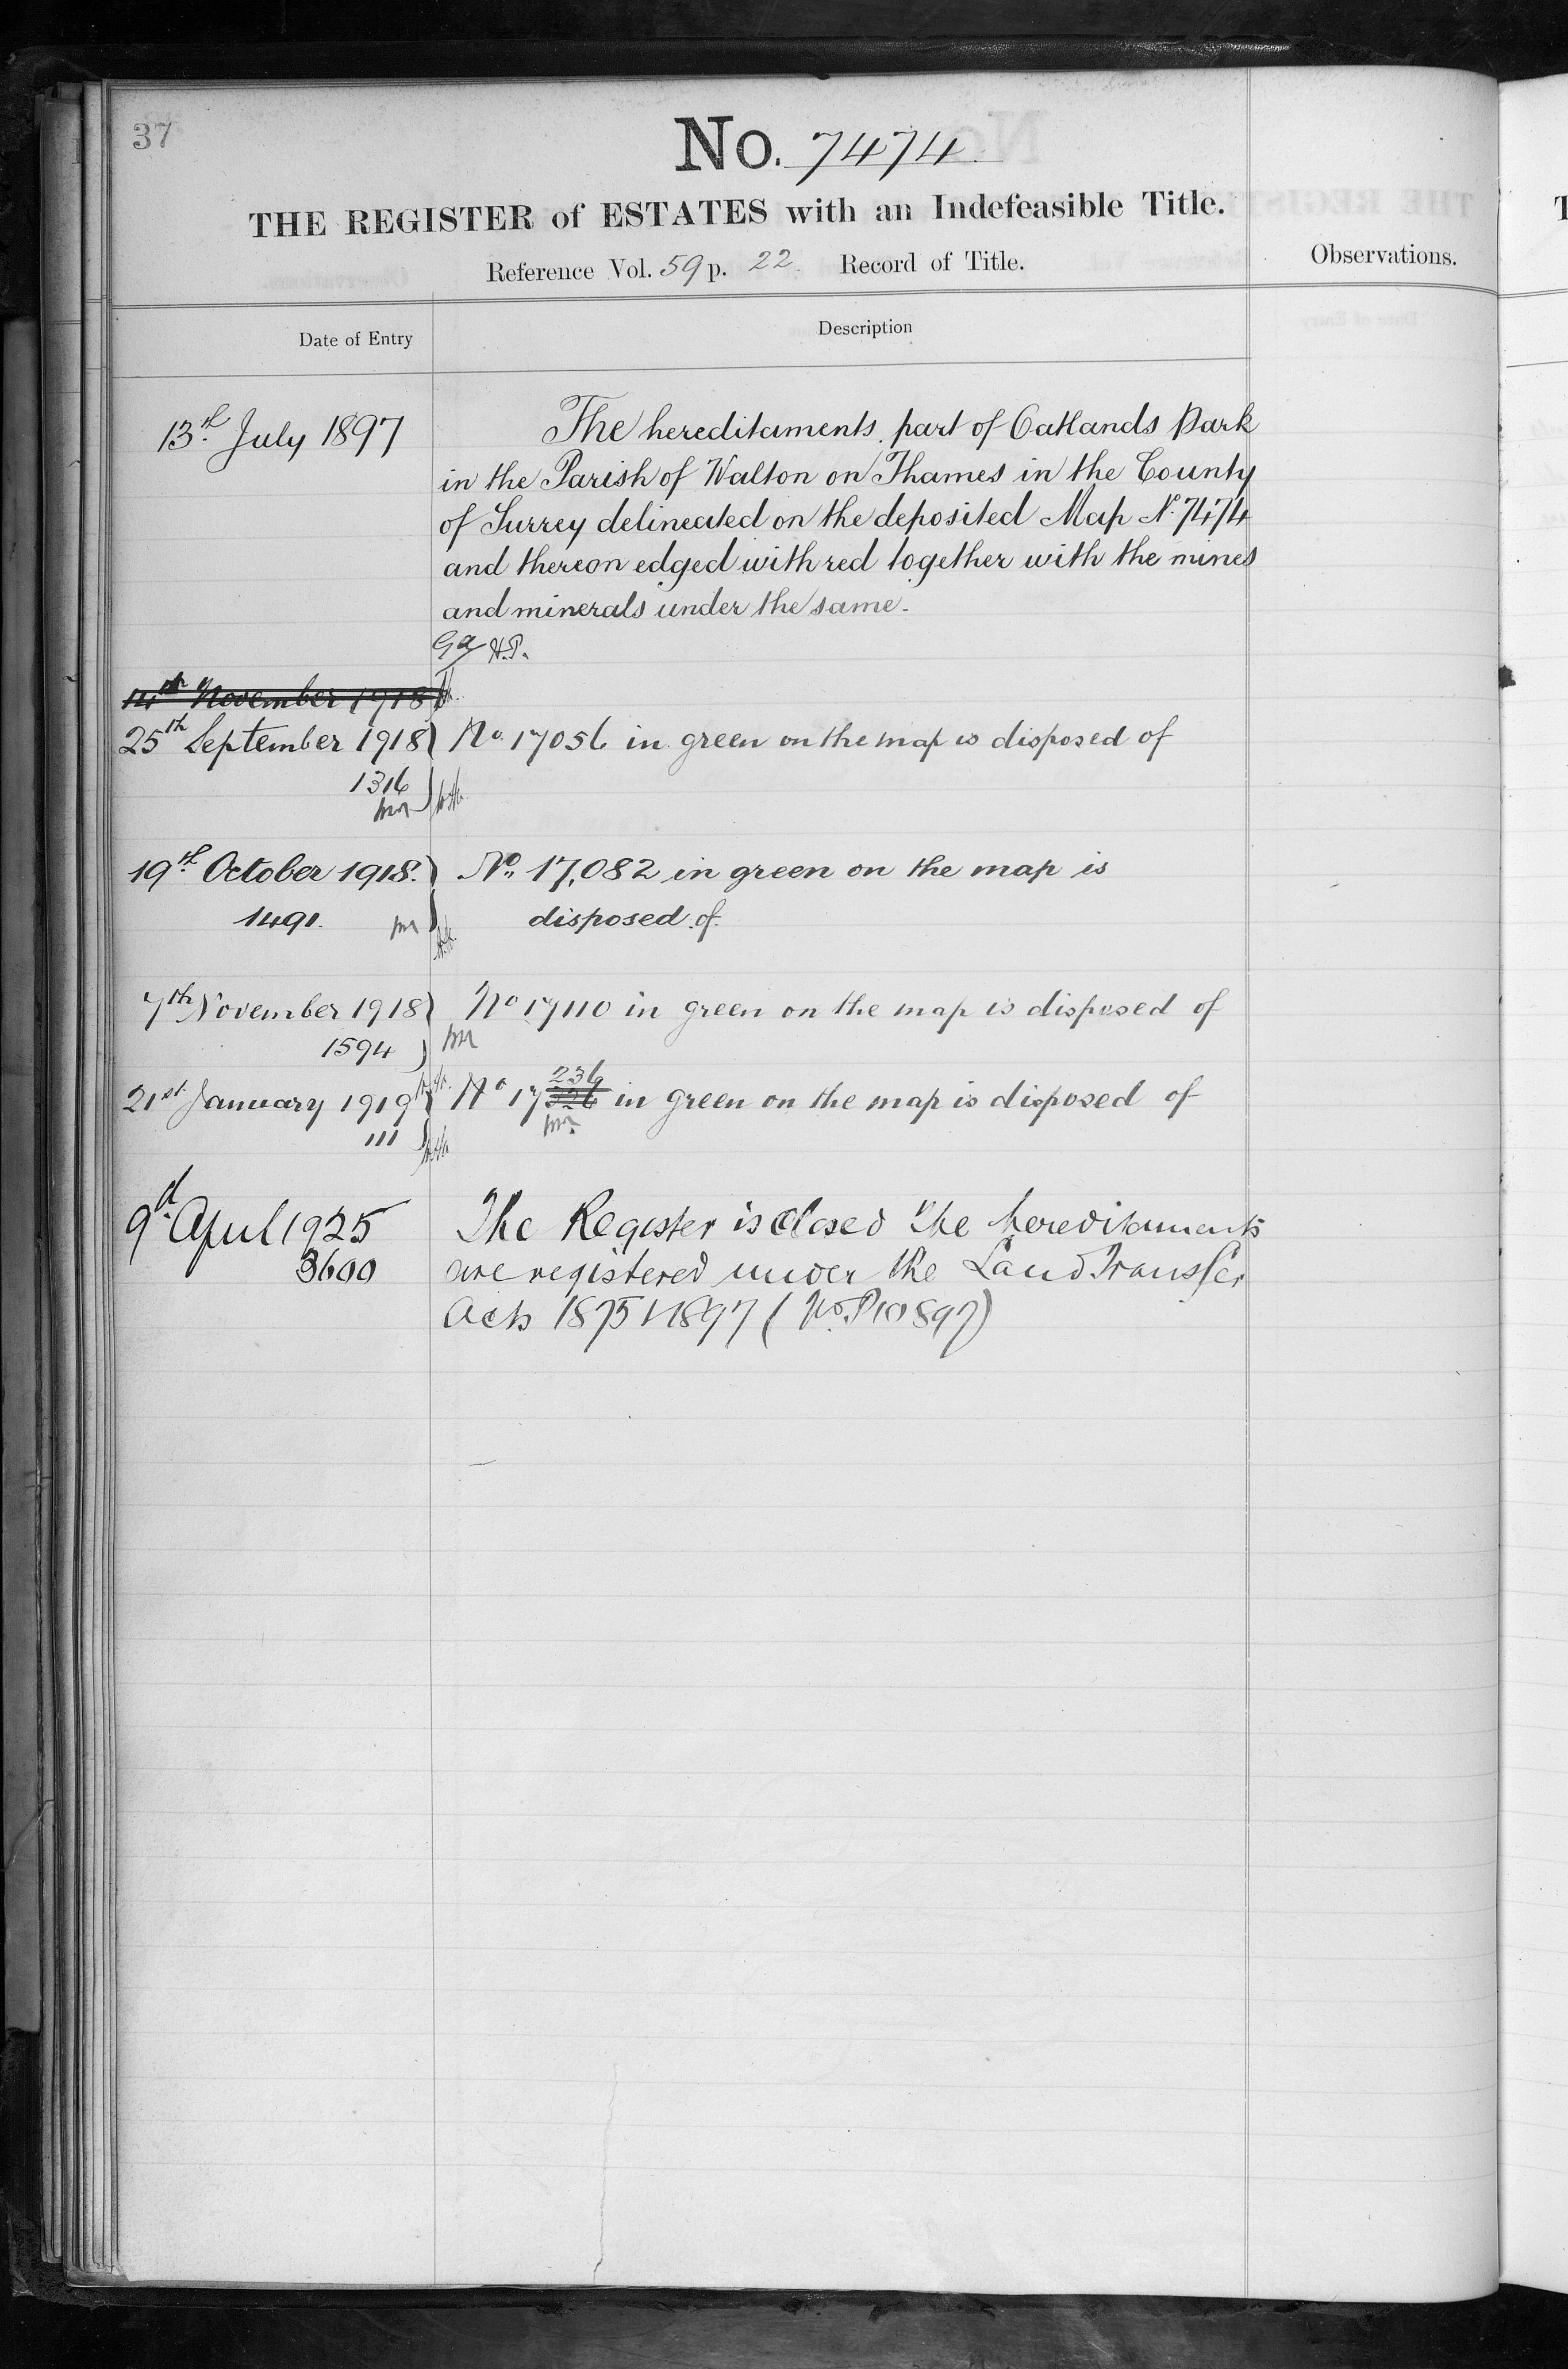 37
No. 7474
THE REGISTER of ESTATES with an Indefeasible Title.
Reference Vol. 59 p. 22 Record of Title.
Observations.
Date of Entry
Description
13th July 1897
The hereditaments part of Oatlands Park
in the Parish of Walton on Thames in the County
of Surrey delineated on the deposited Map No. 7474
and thereon edged with red together with the mines
and minerals under the same.
H.P.
14th November 1918
25th September 1918 No 17056 in green on the map is disposed of
1316
19th October 1918. No. 17,082 in green on the map is
1491. disposed of.
7th November 1918 No 17110 in green on the map is disposed of
1594
236
21st January 1919 No 17326 in green on the map is disposed of
111
9th April 1925 The Register is closed The hereditaments
3600 are registered under the Land Transfer
Acts 1875 & 1897 (No. P10897)